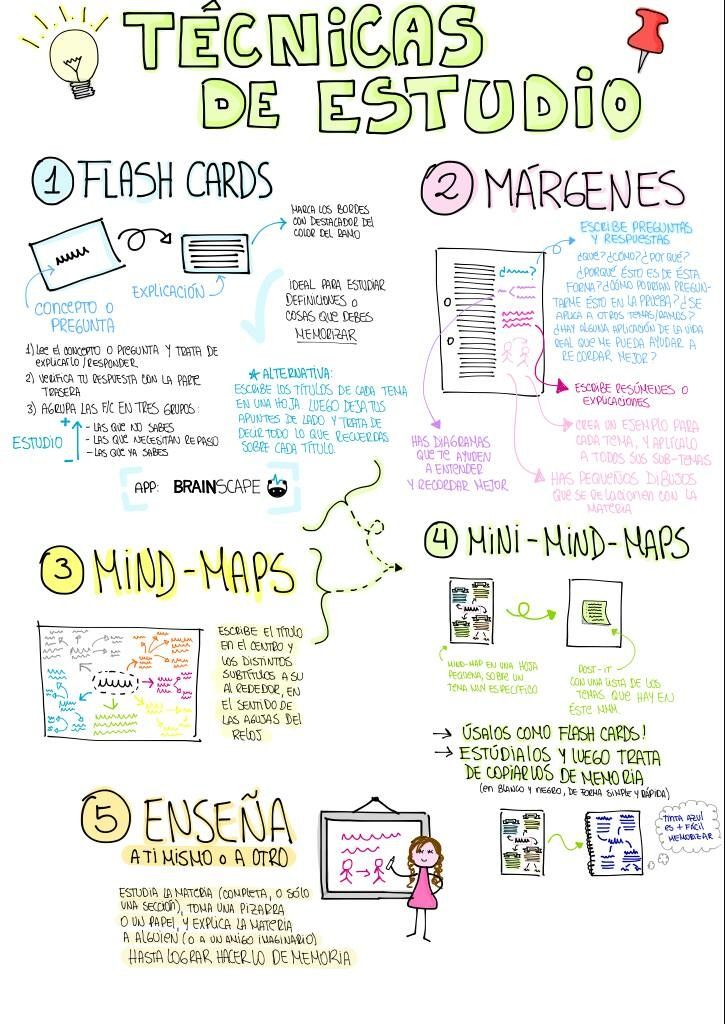 TÉCNICAS
DE ESTUDIO
1 FLASH CARDS
MARCA LOS BORDES
CON DESTACADOR DEL
COLOR DEL RAMO
CONCEPTO O
PREGUNTA
EXPLICACIÓN
IDEAL PARA ESTUDIAR
DEFINICIONES O
COSAS QUE DEBES
MEMORIZAR
1) LEE EL CONCEPTO O PREGUNTA Y TRATA DE
EXPLICARLO/RESPONDER
2) VERIFICA TU RESPUESTA CON LA PARTE
TRASERA
3) AGRUPA LAS F/C EN TRES GRUPOS:
ESTUDIO
+
- LAS QUE NO SABES
- LAS QUE NECESITAN REPASO
- LAS QUE YA SABES
-
* ALTERNATIVA:
ESCRIBE LOS TÍTULOS DE CADA TEMA
EN UNA HOJA. LUEGO DEJA TUS
APUNTES DE LADO Y TRATA DE
DECIR TODO LO QUE RECUERDAS
SOBRE CADA TÍTULO.
APP: BRAINSCAPE
2 MÁRGENES
¿ ?
ESCRIBE PREGUNTAS
Y RESPUESTAS
¿QUÉ? ¿CÓMO? ¿POR QUÉ?
¿PORQUE ÉSTO ES DE ÉSTA
FORMA? ¿CÓMO PODRÍAN PREGUN-
TARME ÉSTO EN LA PRUEBA? ¿SE
APLICA A OTROS TEMAS/RAMOS?
¿HAY ALGUNA APLICACIÓN DE LA VIDA
REAL QUE ME PUEDA AYUDAR A
RECORDAR MEJOR?
ESCRIBE RESÚMENES O
EXPLICACIONES
CREA UN EJEMPLO PARA
CADA TEMA, Y APLÍCALO
A TODOS SUS SUB-TEMAS
HAS DIAGRAMAS
QUE TE AYUDEN
A ENTENDER
Y RECORDAR MEJOR
HAS PEQUEÑOS DIBUJOS
QUE SE RELACIONEN CON LA
MATERIA
3 MIND-MAPS
ESCRIBE EL TÍTULO
EN EL CENTRO Y
LOS DISTINTOS
SUBTÍTULOS A SU
ALREDEDOR, EN
EL SENTIDO DE
LAS AGUJAS DEL
RELOJ
4 MINI-MIND-MAPS
MIND-MAP EN UNA HOJA
PEQUEÑA, SOBRE UN
TEMA MUY ESPECÍFICO
POST-IT
CON UNA LISTA DE LOS
TEMAS QUE HAY EN
ÉSTE MMM
→ ÚSALOS COMO FLASH CARDS!
→ ESTÚDIALOS Y LUEGO TRATA
DE COPIARLOS DE MEMORIA
(EN BLANCO Y NEGRO, DE FORMA SIMPLE Y RÁPIDA)
TINTA AZUL
ES + FÁCIL
MEMORIZAR
5 ENSEÑA
A TI MISMO O A OTRO
ESTUDIA LA MATERIA (COMPLETA, O SÓLO
UNA SECCIÓN), TOMA UNA PIZARRA
O UN PAPEL, Y EXPLICA LA MATERIA
A ALGUIEN (O A UN AMIGO IMAGINARIO)
HASTA LOGRAR HACERLO DE MEMORIA